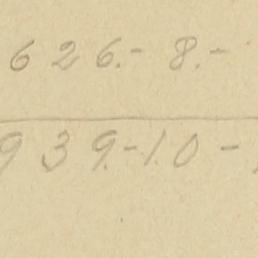 626.-8.-
939.-10-